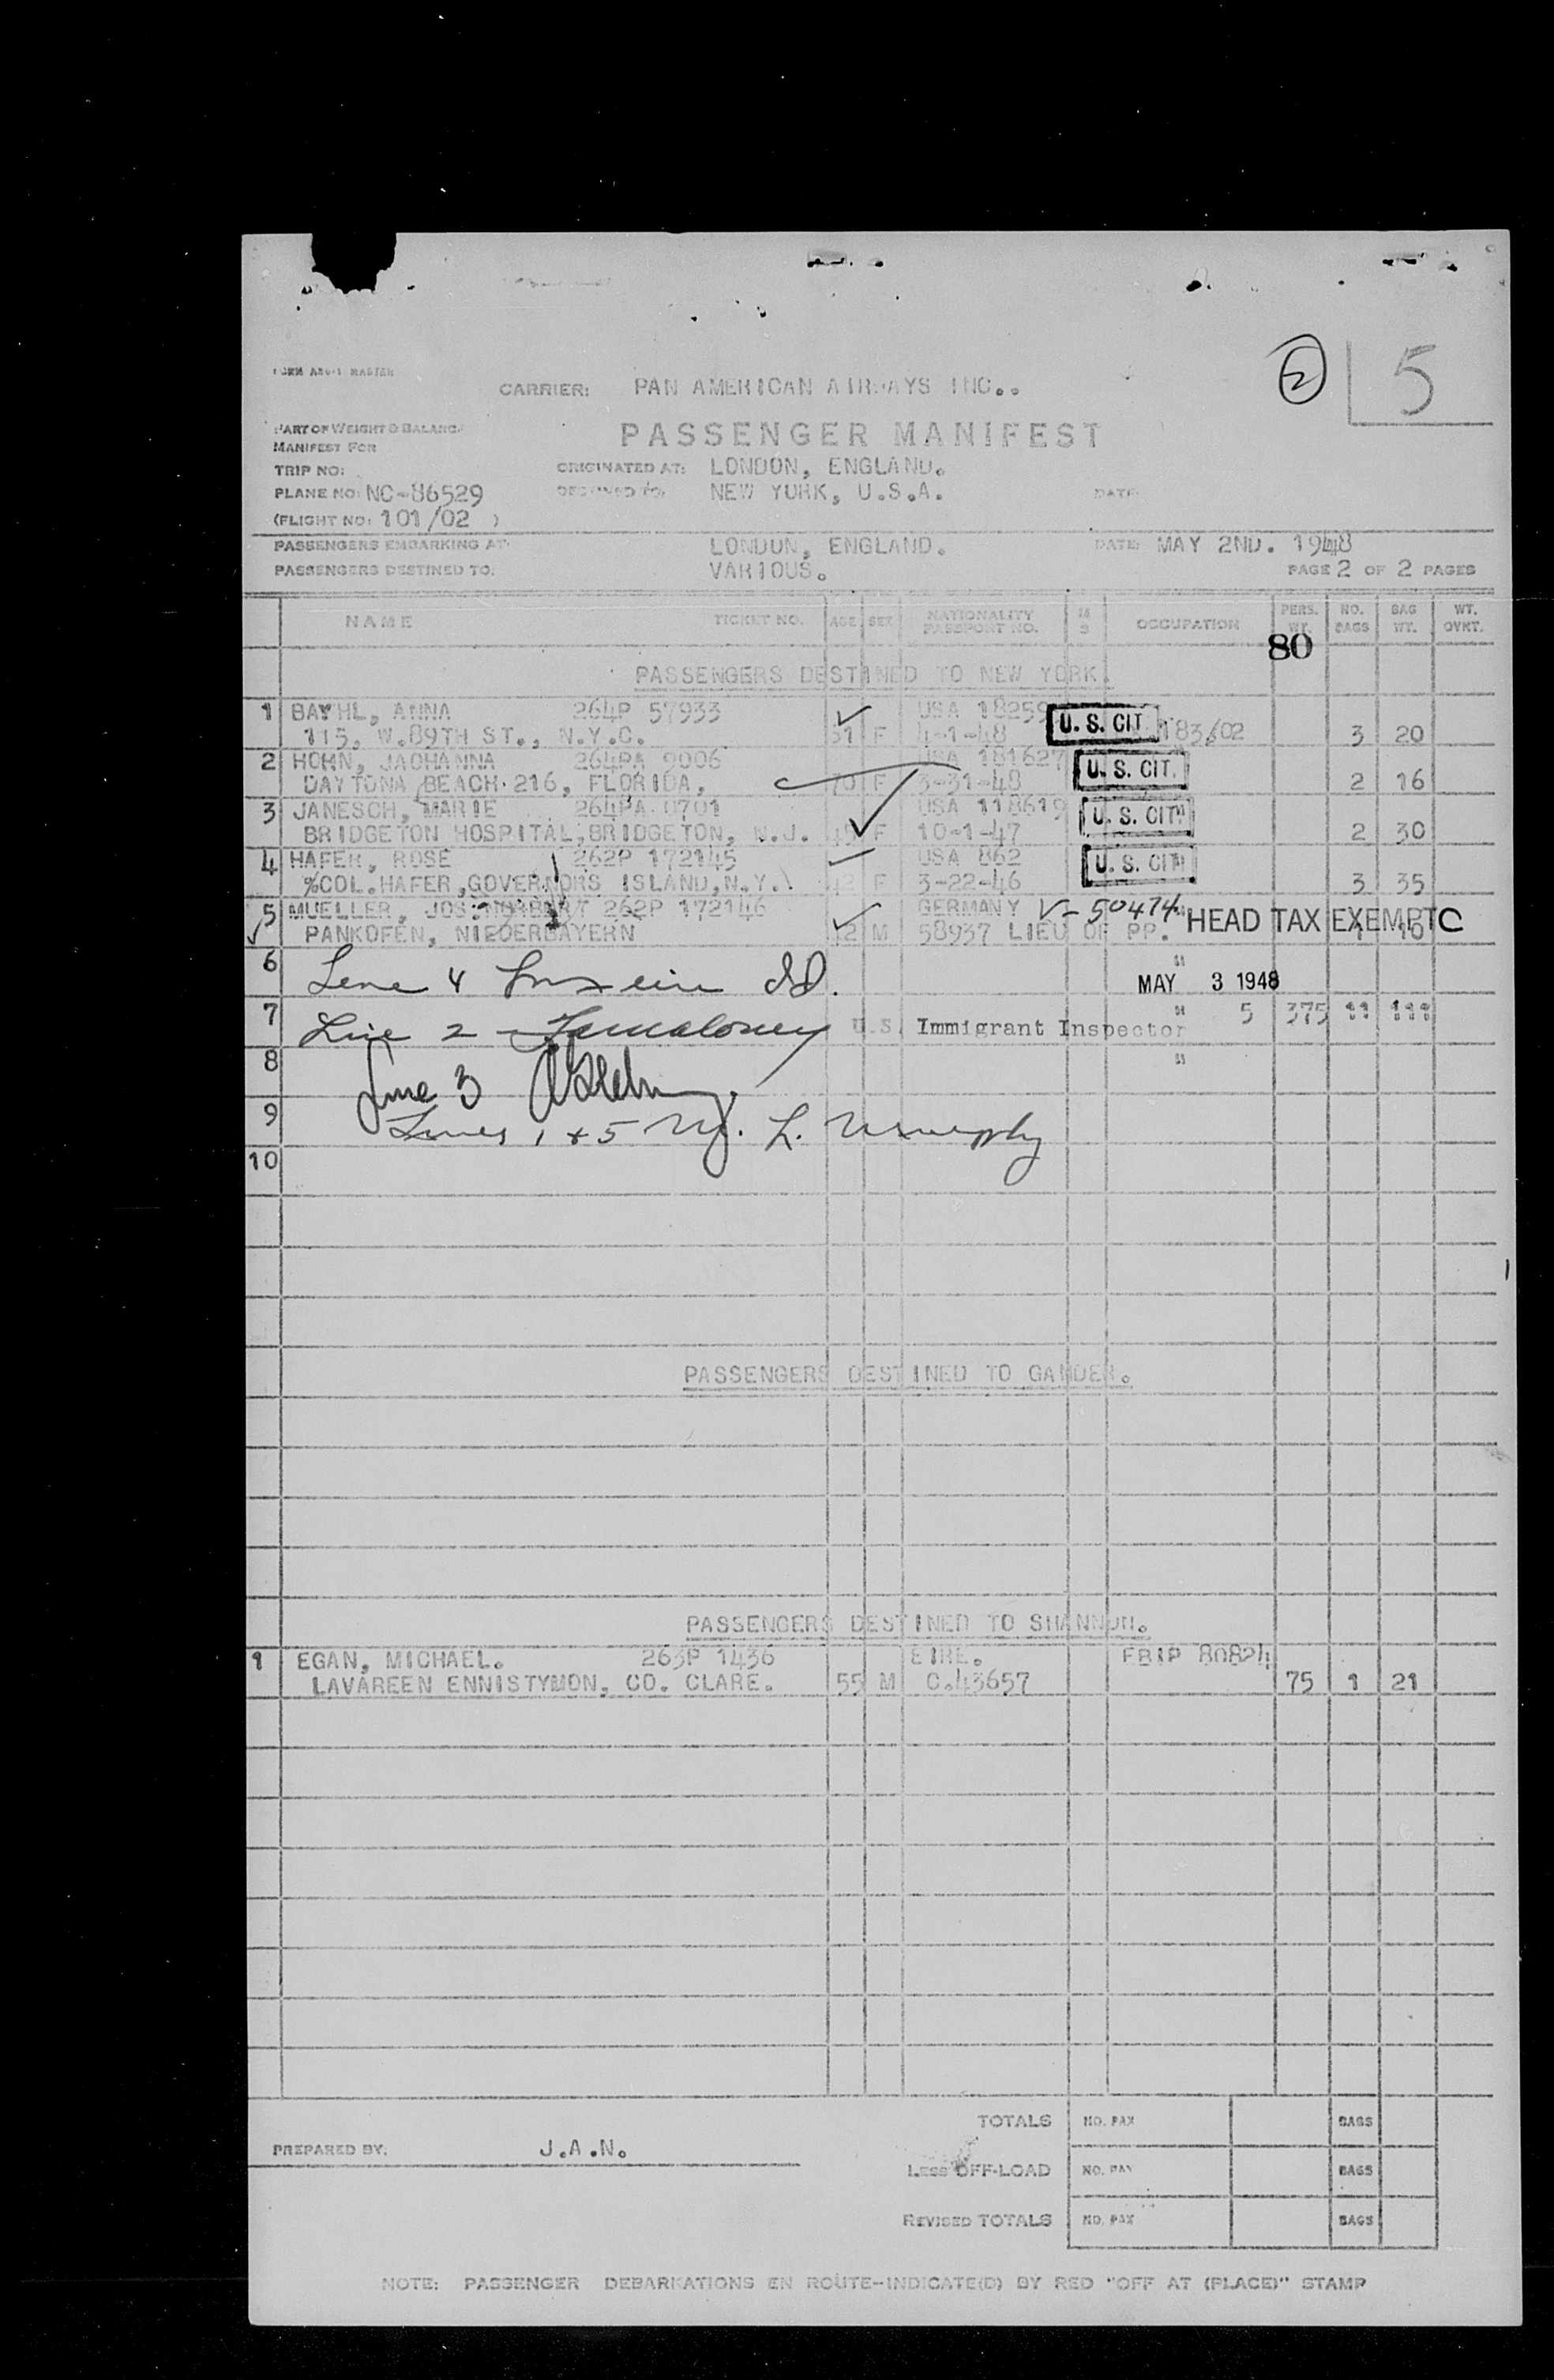 ② 5
FORM MASTER
CARRIER: PAN AMERICAN AIRWAYS INC..
PART OF WEIGHT & BALANCE
PASSENGER MANIFEST
MANIFEST FOR
TRIP NO: ORIGINATED AT: LONDON, ENGLAND.
PLANE NO: NC-86529 DESTINED TO: NEW YORK, U.S.A. DATE:
(FLIGHT NO: 101/02 )
PASSENGERS EMBARKING AT: LONDON, ENGLAND. DATE: MAY 2ND. 1948
PASSENGERS DESTINED TO: VARIOUS. PAGE 2 OF 2 PAGES
NAME TICKET NO. AGE SEX NATIONALITY PASSPORT NO. M S OCCUPATION PERS. WT. NO. BAGS BAG WT. WT. OVKT.
80
PASSENGERS DESTINED TO NEW YORK.
1 BAYHL, ANNA 264P 57933 USA 18259
115, W.89TH ST., N.Y.C. F 4-1-48 U. S. CIT. 183/02 3 20
2 HOHN, JAOHANNA 264PA 9006 USA 181627
DAYTONA BEACH 216, FLORIDA, 70 F 3-31-48 U. S. CIT. 2 16
3 JANESCH, MARIE 264PA 0701 USA 118619
BRIDGETON HOSPITAL, BRIDGETON, N.J. F 10-1-47 U. S. CIT. 2 30
4 HAFER, ROSE 262P 172145 USA 862
%COL.HAFER, GOVERNORS ISLAND, N.Y. 42 F 3-22-46 U. S. CIT. 3 35
5 MUELLER, JOS 262P 172146 GERMANY V-50474 HEAD TAX EXEMPT C
PANKOFEN, NIEDERBAYERN 12 M 58937 LIEU OF PP. 1 10
6 Line 4 MAY 3 1948
7 Line 2 U.S. Immigrant Inspector 5 375 11 111
8 Line 3
9 Lines 1 & 5 M. L. Murphy
10
PASSENGERS DESTINED TO GANDER.
PASSENGERS DESTINED TO SHANNON.
1 EGAN, MICHAEL. 263P 1436 EIRE. EBIP 80824
LAVAREEN ENNISTYMON, CO. CLARE. 55 M C.43657 75 1 21
TOTALS NO. PAX BAGS
PREPARED BY: J.A.N.
LESS OFF-LOAD NO. PAX BAGS
REVISED TOTALS NO. PAX BAGS
NOTE: PASSENGER DEBARKATIONS EN ROUTE-INDICATE(D) BY RED "OFF AT (PLACE)" STAMP